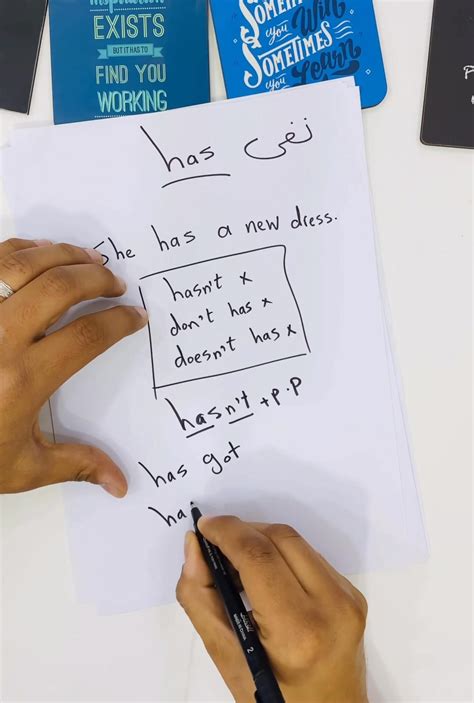 EXISTS
BUT IT HAS TO
FIND YOU
WORKING
SOMETIMES
you Win
SOMETIMES
you Learn
has نفی
She has a new dress.
hasn't x
don't has x
doesn't has x
hasn't + p.p
has got
ha